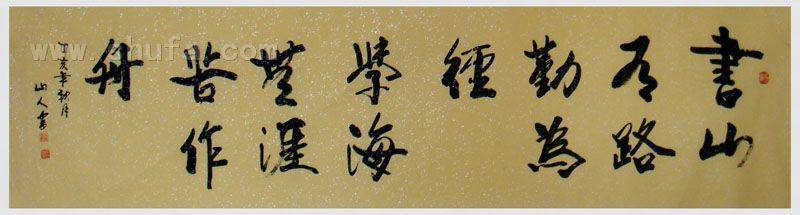 書山
有路
勤為
徑
學海
無涯
苦作
舟
丁亥年秋月
山人書